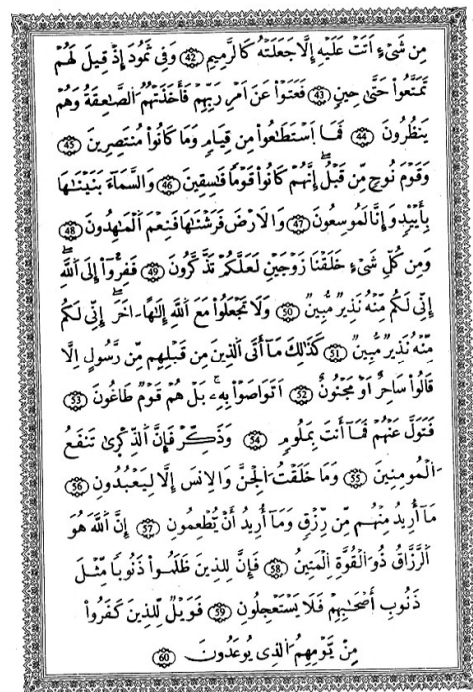 مِن شَيْءٍ اَتَتْ عَلَيْهِ إِلَّا جَعَلَتْهُ كَالرَّمِيمِ 42 وَفِي ثَمُودَ إِذْ قِيلَ لَهُمْ
تَمَتَّعُواْ حَتَّىٰ حِينٍ 43 فَعَتَوْاْ عَنَ اَمْرِ رَبِّهِمْ فَأَخَذَتْهُمُ الصَّاعِقَةُ وَهُمْ
يَنظُرُونَ 44 فَمَا اَسْتَطَاعُواْ مِن قِيَامٍ وَمَا كَانُواْ مُنتَصِرِينَ 45
وَقَوْمَ نُوحٍ مِّن قَبْلُ إِنَّهُمْ كَانُواْ قَوْمًا فَاسِقِينَ 46 وَالسَّمَآءَ بَنَيْنَاهَا
بِأَيْيدٍ وَإِنَّا لَمُوسِعُونَ 47 وَالَارْضَ فَرَشْنَاهَا فَنِعْمَ الْمَاهِدُونَ 48
وَمِن كُلِّ شَيْءٍ خَلَقْنَا زَوْجَيْنِ لَعَلَّكُمْ تَذَّكَّرُونَ 49 فَفِرُّواْ إِلَى اللَّهِ
إِنِّي لَكُم مِّنْهُ نَذِيرٌ مُّبِينٌ 50 وَلَا تَجْعَلُواْ مَعَ اللَّهِ إِلَٰهًا اخَرَ إِنِّي لَكُم
مِّنْهُ نَذِيرٌ مُّبِينٌ 51 كَذَٰلِكَ مَآ أَتَى الَّذِينَ مِن قَبْلِهِم مِّن رَّسُولٍ اِلَّا
قَالُواْ سَاحِرٌ اَوْ مَجْنُونٌ 52 اَتَوَاصَوْاْ بِهِ بَلْ هُمْ قَوْمٌ طَاغُونَ 53
فَتَوَلَّ عَنْهُمْ فَمَآ أَنتَ بِمَلُومٍ 54 وَذَكِّرْ فَإِنَّ الذِّكْرَىٰ تَنفَعُ
الْمُومِنِينَ 55 وَمَا خَلَقْتُ الْجِنَّ وَالِانسَ إِلَّا لِيَعْبُدُونِ 56
مَآ أُرِيدُ مِنْهُم مِّن رِّزْقٍ وَمَآ أُرِيدُ أَنْ يُّطْعِمُونِ 57 إِنَّ اللَّهَ هُوَ
الرَّزَّاقُ ذُو الْقُوَّةِ الْمَتِينُ 58 فَإِنَّ لِلَّذِينَ ظَلَمُواْ ذَنُوبًا مِّثْلَ
ذَنُوبِ أَصْحَابِهِمْ فَلَا يَسْتَعْجِلُونِ 59 فَوَيْلٌ لِّلَّذِينَ كَفَرُواْ
مِنْ يَّوْمِهِمُ الَّذِي يُوعَدُونَ 60